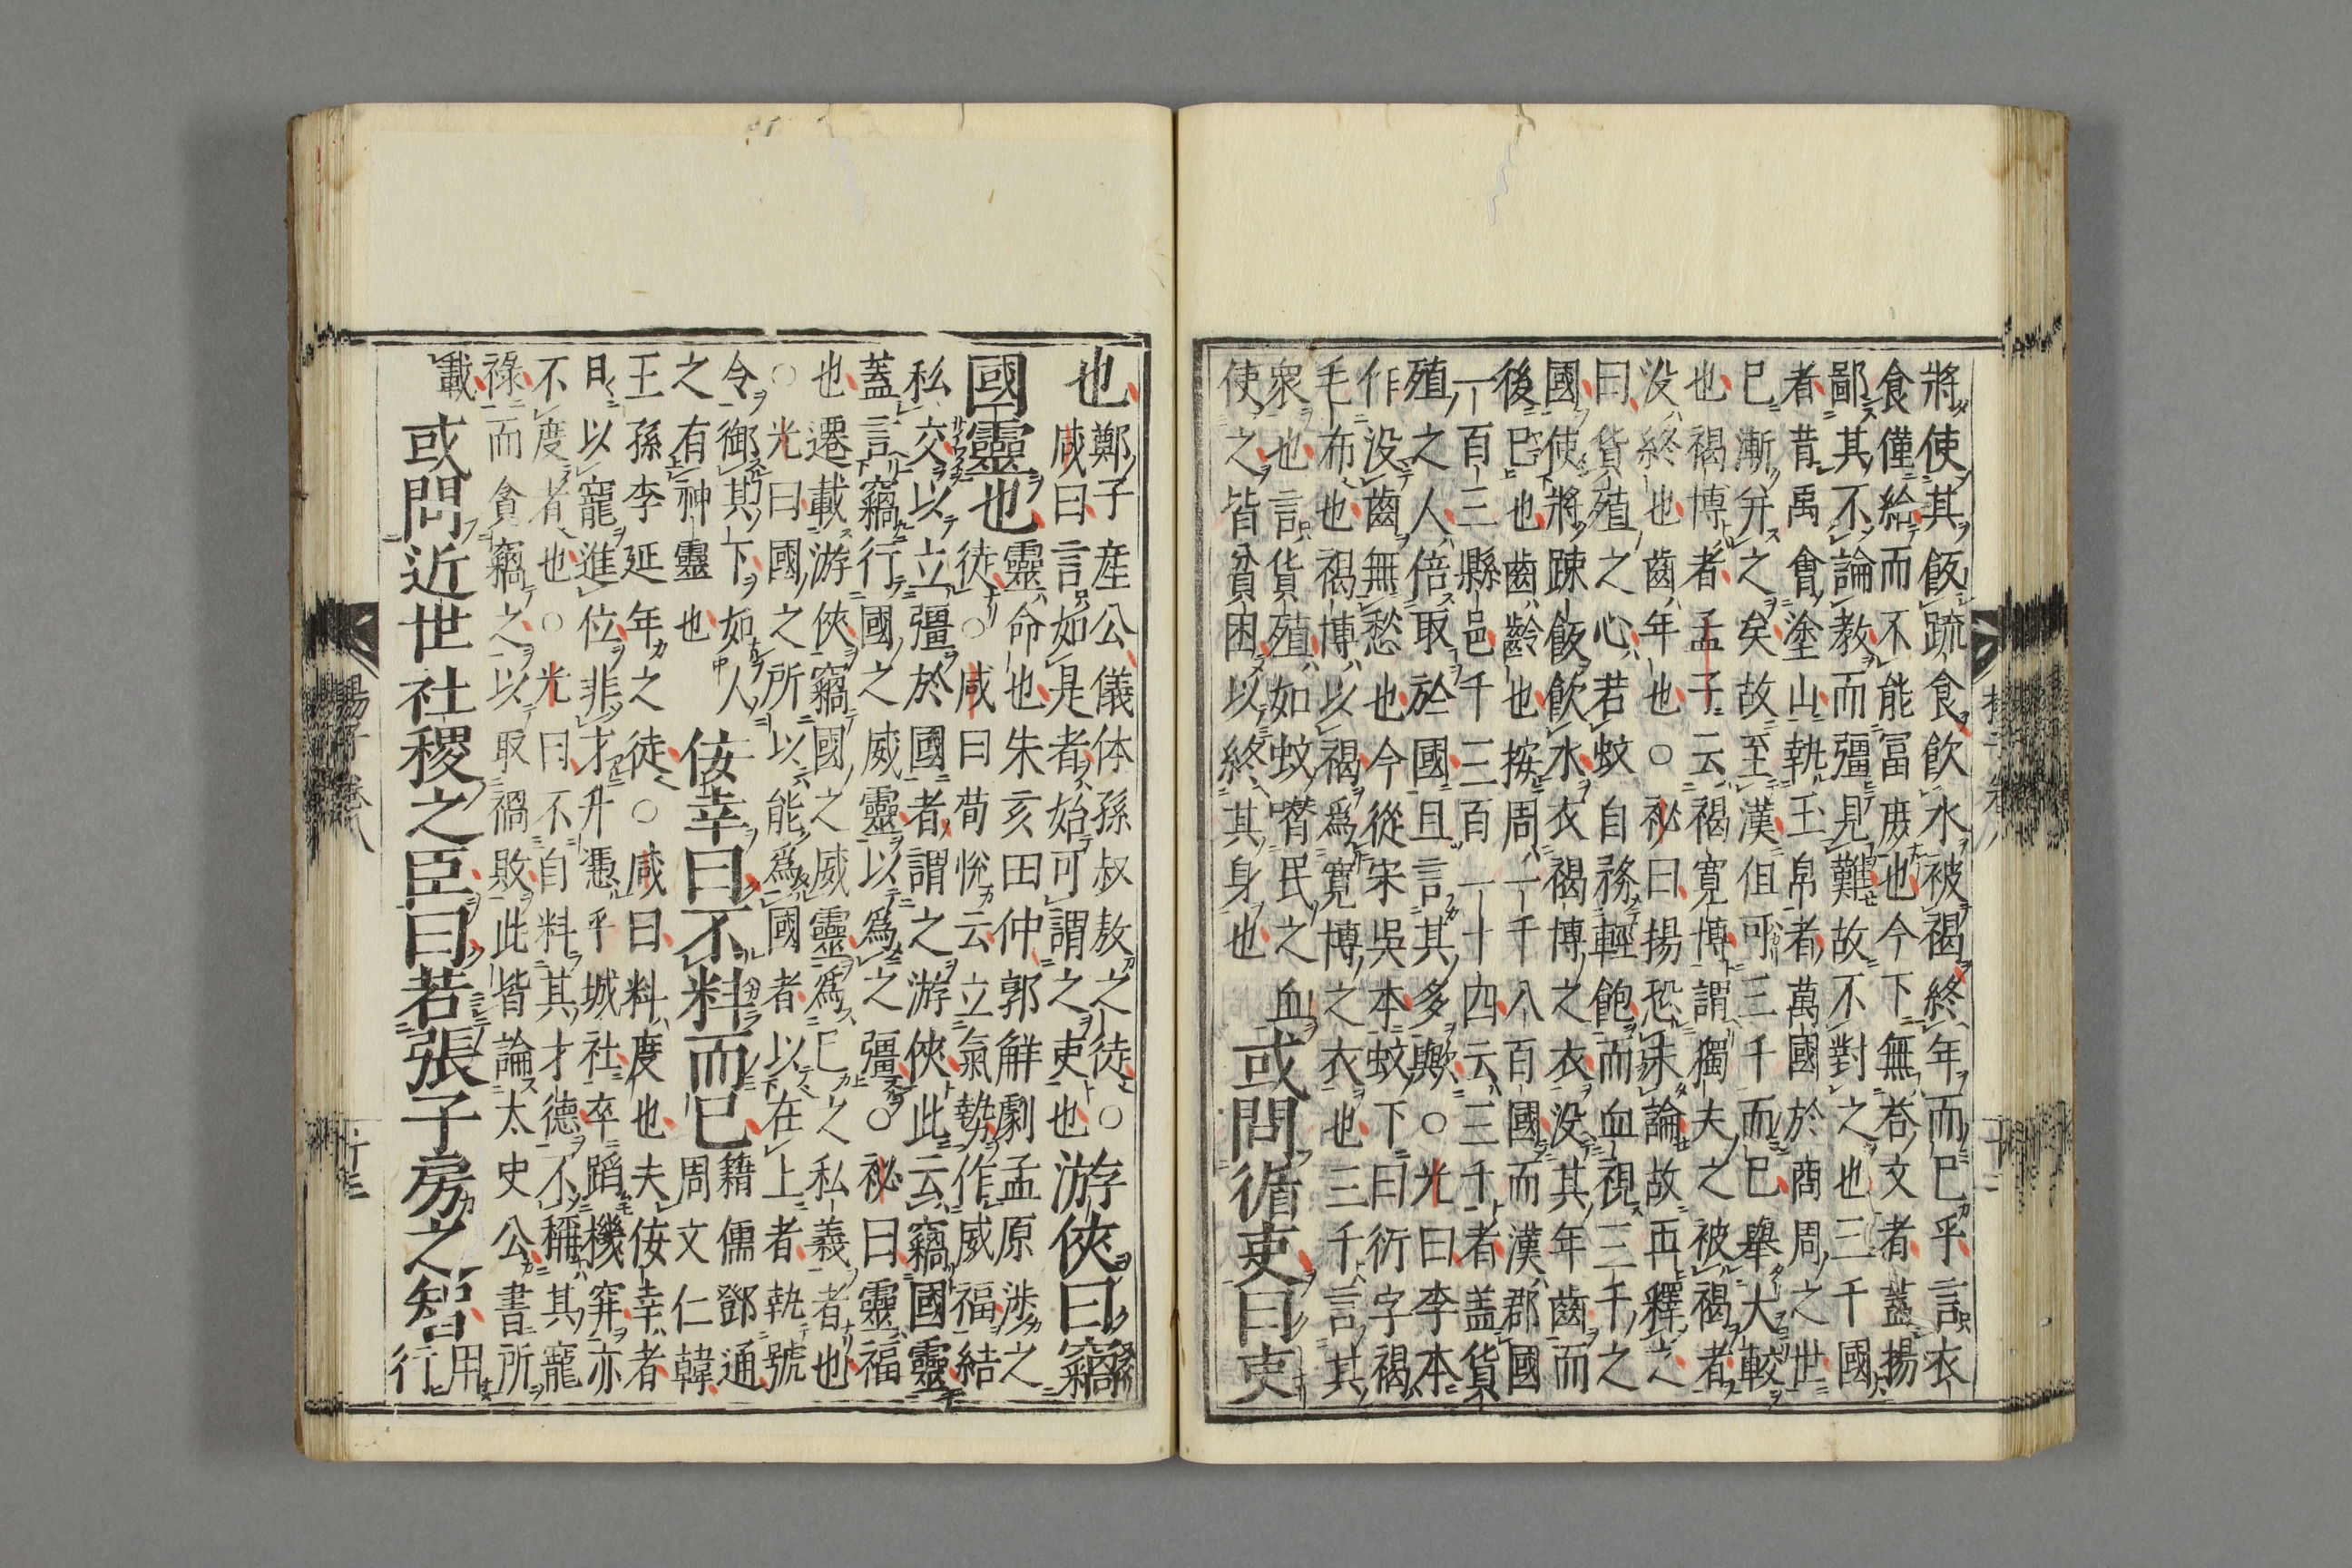 將使其飯疏食飲水被褐終年而已乎言衣
食僅給而不能冨庻也今下無荅文者蓋揚
鄙其不論教而彊見難故不對之也三千國
者昔禹會塗山執玉帛者萬國於商周之世
已漸并之矣故至漢但可三千而已舉大較
也褐博者孟子云褐寛博謂獨夫之被褐者
没終也齒年也○祕曰揚恐未論故再釋之
曰貨殖之心若蚊自務輕飽而血視三千之
國使將踈飯飲水衣褐博之衣没其年齒而
後已也齒齡也按周一千八百國而漢郡國
一百三縣邑千三百一十四云三千者盖貨
殖之人倍取於國且言其多歟○光曰李本
作没齒無愁也今從宋吳本蚊下曰衍字褐
毛布也褐博以褐爲寛博之衣也三千言其
衆也言貨殖如蚊噆民之血
使之皆貧困以終其身也
或問循吏曰吏
也
鄭子産公儀体孫叔敖之徒○
咸曰言如是者始可謂之吏也
游俠曰竊
國靈也
靈命也朱亥田仲郭解劇孟原渉之
徒○咸曰荀悅云立氣勢作威福結
私交以立彊於國者謂之游俠此云竊國靈
蓋言竊行國之威靈以爲之彊○祕曰靈福
也遷載游俠竊國之威靈爲己之私義者也
○光曰國之所以能爲國者以在上者執號
令御其下如人
之有神靈也
佞幸曰不料而已
籍儒鄧通
周文仁韓
王孫李延年之徒○咸曰料度也夫佞幸者
日以寵進位非才升憑乎城社卒蹈機穽亦
不度者也○光曰不自料其才德不稱其寵
祿而貪竊之以取禍敗此皆論太史公書所
載
或問近世社稷之臣曰若張子房之智
用
行
揚子卷八
十三